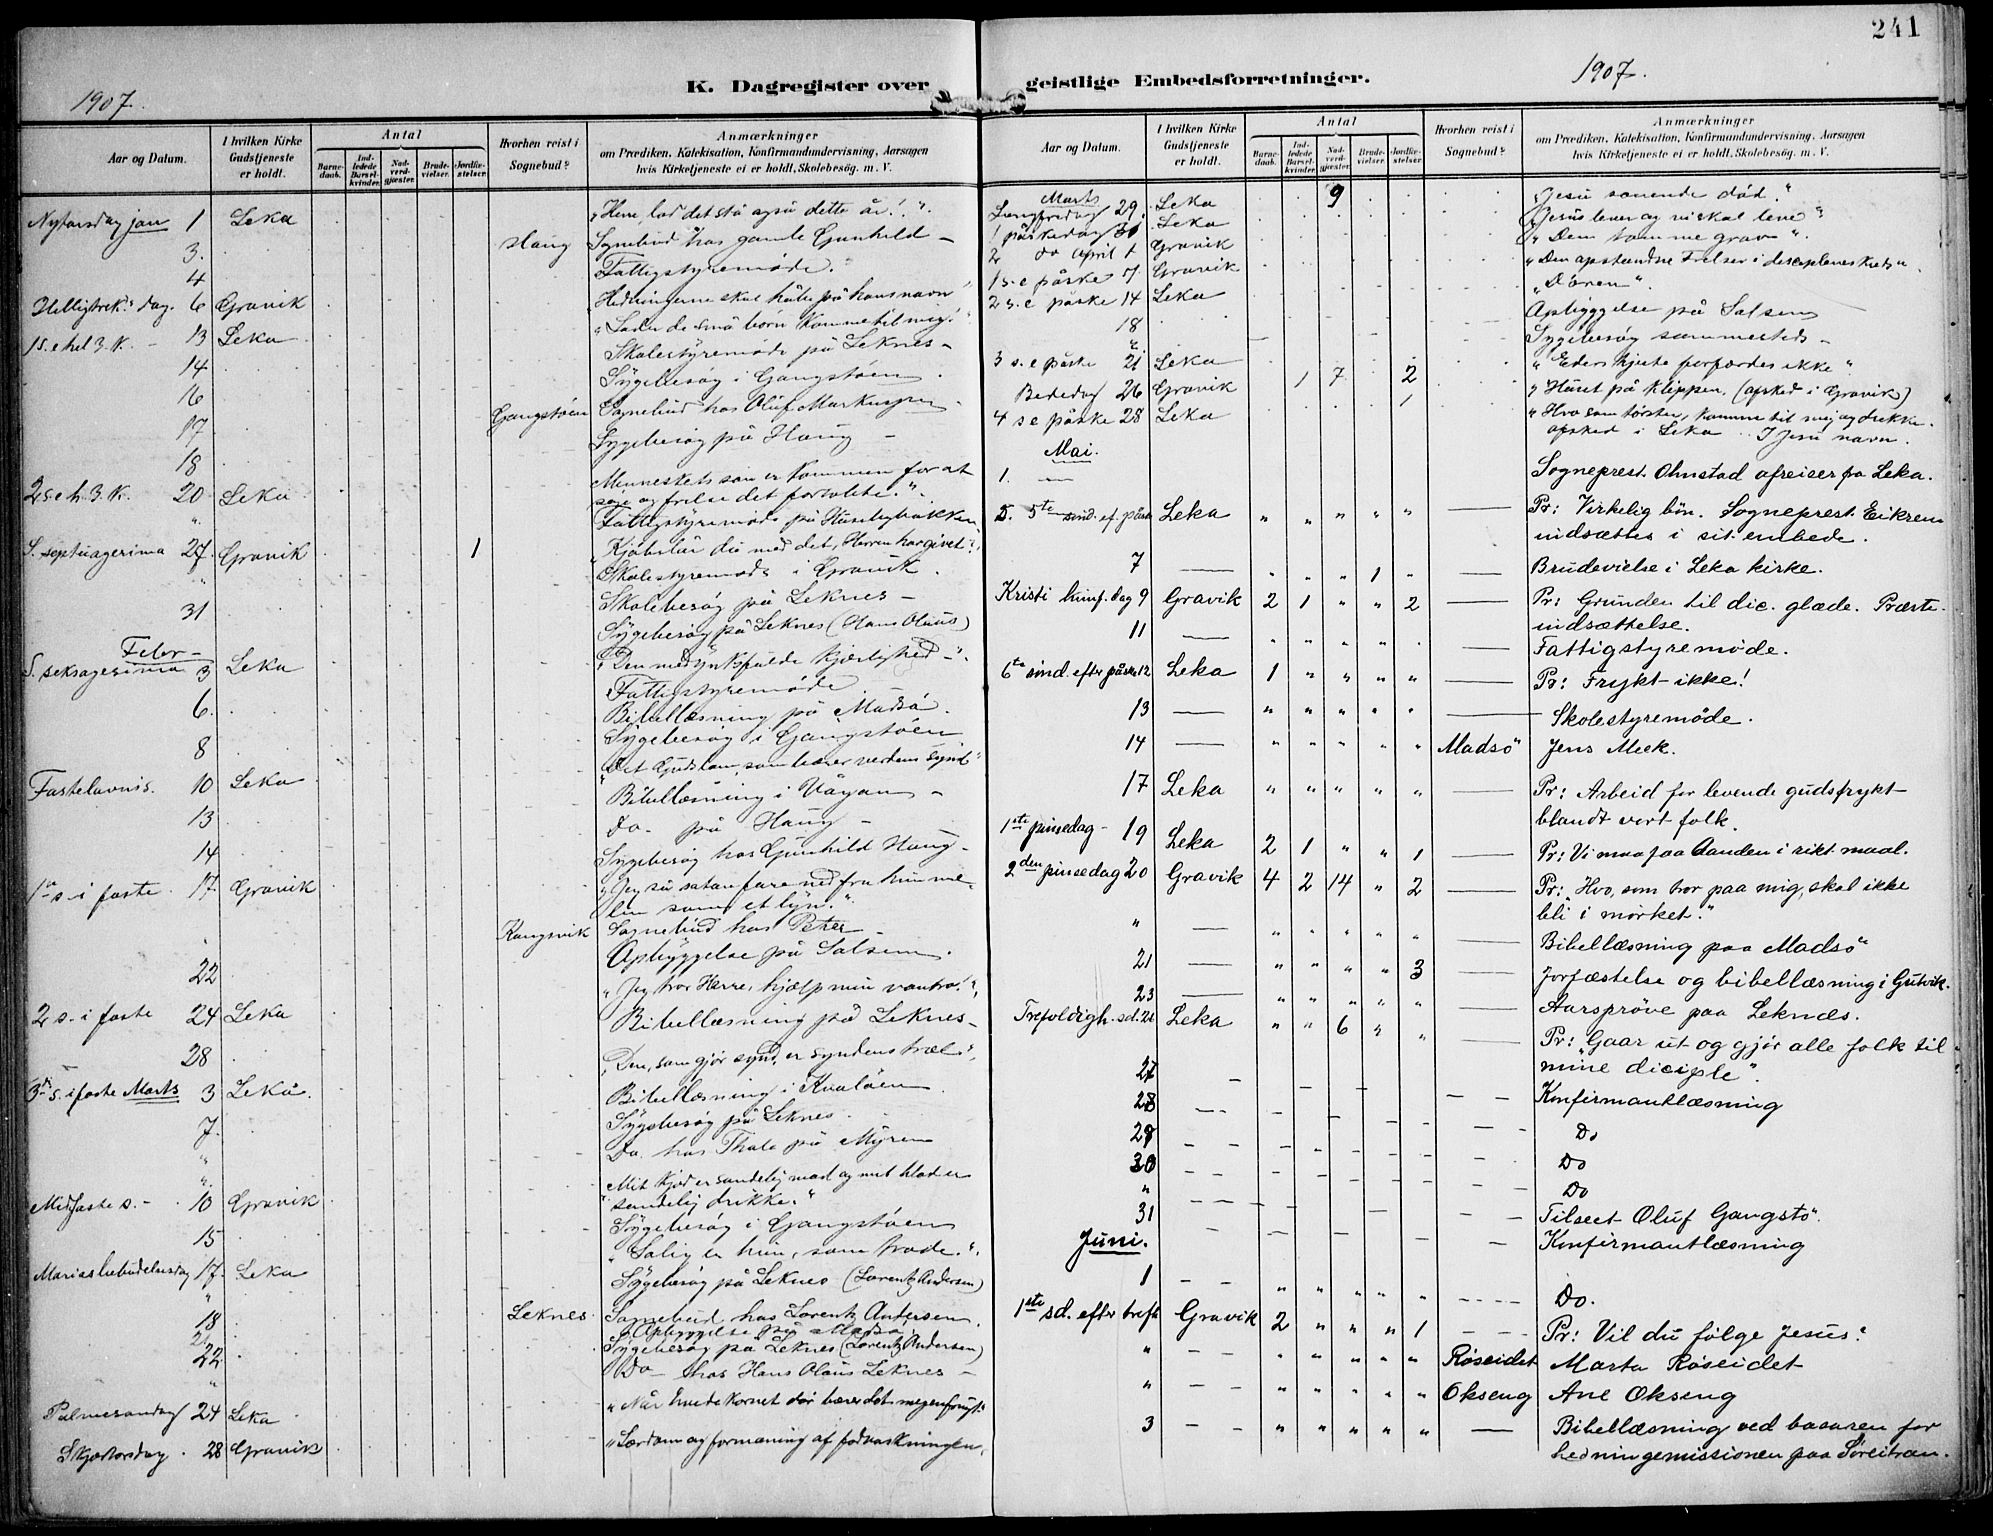 241
1907.
1907.
K. Dagregister over geistlige Embedsforretninger.
Aar og Datum.
I hvilken Kirke Gudstjeneste er holdt.
Antal
Barnedaab.
Indledede Barselkvinder.
Nadverdgjæster.
Brudevielser.
Jordfæstelser
Hvorhen reist i Sognebud?
Anmærkninger
om Prædiken, Katekisation, Konfirmandundervisning, Aarsagen
hvis Kirketjeneste ei er holdt, Skolebesøg. m. V.
Nytaarsdag jan 1 Leka "Herre, lad det stå også dette år!".
3. Haug Sognebud hos gamle Gunhild –
4 Fattigstyremøde.
Helligtrek. dag. 6 Gravik Hedningerne skal håbe på hans navn"
1 s. e hel 3. K. – 13 Leka "Lader de små børn komme til mig!"
14 Skolestyremøde på Leknes –
16 Sygebesøg i Gangstøen.
17 Gangstøen Sognebud hos Oluf Markussen
18 Sygebesøg på Haug –
2 s e h. 3. K. 20 Leka Menneskets søn er kommen for at
søge og frelse det fortabte.".
" Fattigstyremøde på Husebybakken
S. septuagerima 27. Gravik 1 "Kjøbslår du med det, Herren har givet?"
" Skolestyremøde i Gravik.
31 Skolebesøg på Leknes –
Sygebesøg på Leknes (Hans Olaus)
Febr –
S. seksagesima 3 Leka "Den medynksfulde kjærlighed –".
6. Fattigstyremøde
Bibellæsning på Madsø.
8 Sygebesøg i Gangstøen
Fastelavnss. 10 Leka "Det Guds lam, som bærer verdens synd"
13 Bibellæsning i Vågan –
14 Do. på Haug –
Sygebesøg hos Gunhild Haug –
1ste s – i faste. 17. Gravik "Jeg så satan fare ned fra himme-
len som et lyn.".
Kongsvik Sognebud hos Peter –
22 Opbyggelse på Salsen.
2 s. i faste 24 Leka "Jeg tror Herre, hjælp min vantro!",
28 Bibellæsning på Leknes –
3die s. i faste Marts 3 Leka. "Den, som gjør synd, er syndens træl".
7. Bibellæsning i Kvaløen
" Sygebesøg på Leknes.
" Do. hos Thale på Myren
Midfaste s. – 10 Gravik "Mit kjød er sandelig mad og mit blod er
sandelig drikke."
15 Sygebesøg i Gangstøen
Mariæ bebudelsesdag 17. Leka "Salig er hun, som trode.".
" Sygebesøg på Leknes (Lorentz Andersen)
18 Leknes. Sognebud hos Lorentz Andersen.
21 Opbyggelse på Madsø
22 Sygebesøg på Leknes (Lorentz Andersen)
" Do – hos Hans Olaus Leknes –
Palmesøndag 24 Leka "Når hvedekornet dør bærer det megen frugt."
Skjærtorsdag. 28 Gravik "Lærdom og formaning af fodvaskningen."
Aar og Datum.
I hvilken Kirke Gudstjeneste er holdt.
Antal
Barnedaab.
Indledede Barselkvinder.
Nadverdgjæster.
Brudevielser.
Jordfæstelser
Hvorhen reist i Sognebud?
Anmærkninger
om Prædiken, Katekisation, Konfirmandundervisning, Aarsagen
hvis Kirketjeneste ei er holdt, Skolebesøg. m. V.
Marts
Langfredag 29. Leka 9 "Jesu sonende død."
1 påskedag 31 Leka "Jesus lever og vi skal leve"
2 do april 1 Gravik "Den tomme grav".
1 s. e påske 7 Gravik "Den opstandne Frelser i disciplenes kreds".
2 s. e påske 14 Leka "Døren".
18 Opbyggelse på Salsen
" Sygebesøg sammesteds –
3 s. e påske 21 Leka "Eders hjerte forfærdes ikke"
Bededag 26 Gravik 1 7 2 "Huset på klippen. (afsked i Gravik)
4 s e påske 28 Leka 1 "Hvo som tørster, komme til mig og drikke.
afsked i Leka. I Jesu navn.
Mai.
1. – Sogneprest Ohnstad afreiser fra Leka.
5. 5te sind. ef. påske Leka " " " " " — Pr: Virkelig bøn. Sogneprest Eikrem
indsættes i sit embede.
7 — " " " 1 " — Brudevielse i Leka kirke.
Kristi himf. dag 9 Gravik 2 1 " " 2 — Pr: Grunden til dic. glæde. Præste-
indsættelse.
11 — " " " " " Fattigstyremøde.
6te sind. efter påske 12 Leka 1 " " " " — Pr: Frykt ikke!
13 — " " " " " — Skolestyremøde.
14 — " " " " " Madsø Jens Meek.
17 Leka " " " " " — Pr: Arbeid for levende gudsfrykt
blandt vort folk.
1ste pinsedag – 19 Leka 2 1 " " 1 — Pr: Vi maa faa Aanden i rikt maal.
2den pinsedag 20 Gravik 4 2 14 " 2 — Pr: "Hvo, som tror paa mig, skal ikke
bli i mørket."
" — " " " " " — Bibellæsning paa Madsø
21 — " " " " 3 — Jorfæstelse og bibellæsning i Gutvik.
23 — " " " " " — Aarsprøve paa Leknæs.
Trefoldigh. sd. 26 Leka " " 6 " " — Pr: "Gaar ut og gjør alle folk til
mine diciple".
27 – Konfirmantlæsning
28 – Do
29 – Do
30 – Do
" – Tilseet Oluf Gangstø.
31 – Konfirmantlæsning
Juni.
1 – – " " " " " – – – Do.
1ste sd. efter trefh. Gravik 2 " " " 1 – – Pr: Vil du følge Jesus?
" – – " " " " " Røseidet Marta Røseidet
" – – " " " " " Okseng Ane Okseng
3 – – " " " " " — Bibellæsning ved basaren for
hedningemissionen paa Søreitran.